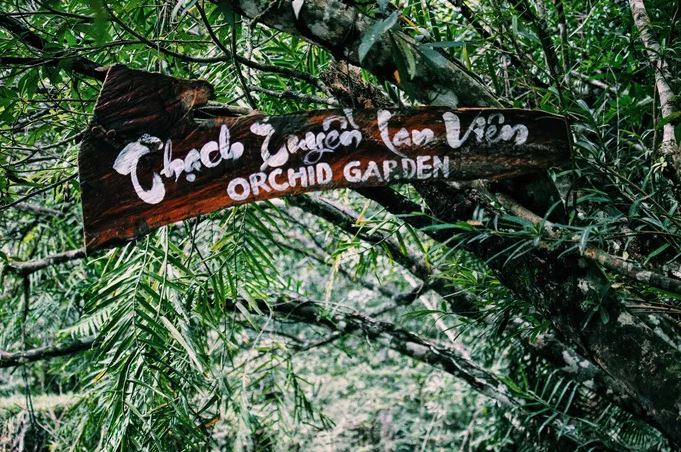 Thạch Tuyền Lan Viên
ORCHID GARDEN